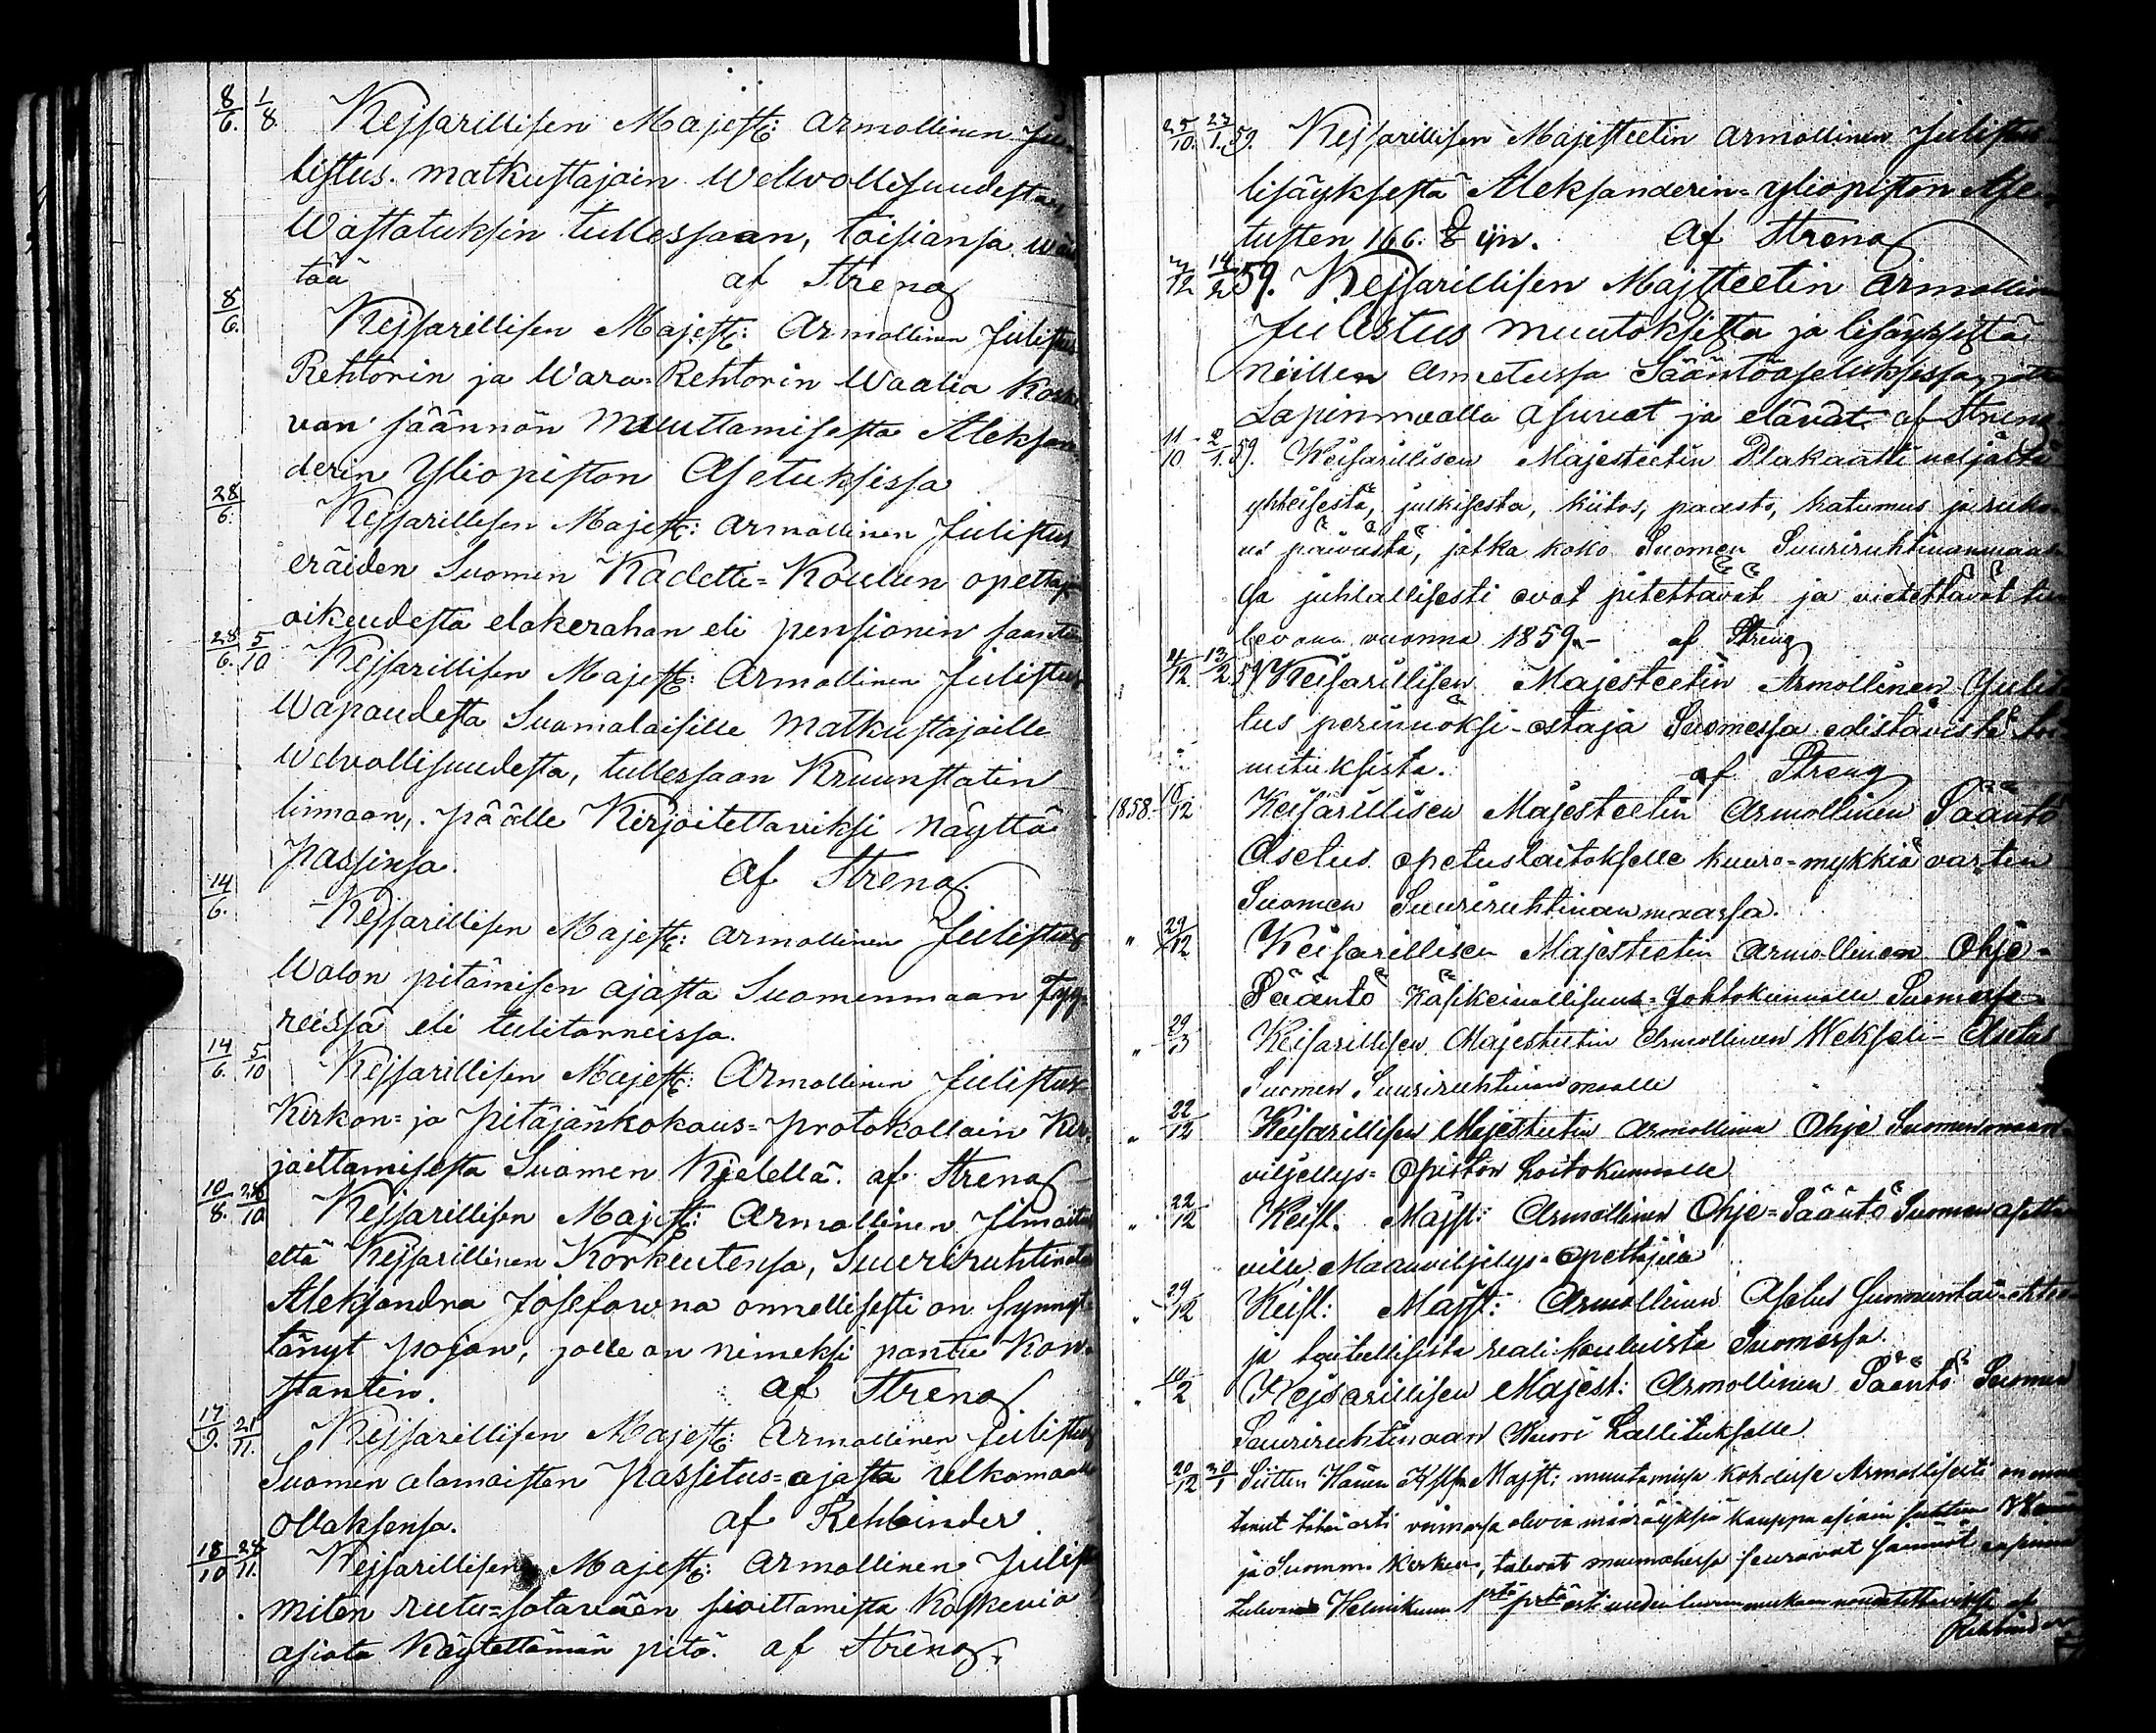 8/6. 1/8. Kejsarillisen Majest: Armollinen Ju-
listus. matkustajain Welvollisuudesta,
Wastatuksin tullessaan, toisiansa wäis
tää af Streng
8/6. Kejsarillisen Majest: Armollinen Julistus
Rehtorin ja Wara-Rehtorin Waalia koske
van säännön muuttamisesta Aleksan-
derin Yliopiston Asetuksissa
28/6. Kejsarillisen Majest: Armollinen Julistus
eräiden Suomen Kadetti-Koulun opettaja
oikeudesta elakerahan eli pensionin saantiin
28/6. 5/10 Kejsarillisen Majest: Armollinen Julistus
Wapaudesta Suomalaisille Matkustajoille
Welvollisuudesta, tullessaan Kruunstatin
linnaan, päälle Kirjoitettaviksi näyttä
passinsa. af Streng.
14/6. Kejsarillisen Majest: Armollinen Julistus
Walon pitämisen ajasta Suomenmaan Fyy-
reissä eli tulitorneissa.
14/6. 5/10 Kejsarillisen Majest: Armollinen Julistus
Kirkon- ja Pitäjänkokous-protokollain Kir-
joittamisesta Suomen Kielellä. af Streng
10/8. 28/10 Kejsarillisen Majest: Armollinen Ilmoitus
että Kejsarillinen Korkeutensa, Suuriruhtinatar
Aleksandra Josefowna onnellisesti on synnyt-
tänyt pojan, jolle on nimeksi pantu Kon-
stantin. af Streng
17/9. 21/11. Kejsarillisen Majest: Armollinen Julistus
Suomen alamaisten passitus-ajasta ulkomaalla
ollaksensa. af Rehbinder.
18/10 28/11. Kejsarillisen Majest: Armollinen Julist
miten ruutu-sotaväen sioittamista koskevia
asiota käytettämän pitä. af Streng.
25/10. 23/1. 59. Kejsarillisen Majesteetin Armollinen Julistus
lisäyksestä Aleksanderin-yliopiston Ase-
tusten 166. § iin. af Streng
3/12 14/2 59. Kejsarillisen Majsteetin Armollin
Julistus muutoksista ja lisäyksistä
niillen annetuissa Sääntöasetuksissa, jotka
Lapinmaalla asuvat ja elävät af Streng
11/10 2/1. 59. Keisarillisen Majesteetin Plakaatti neljästä
yhteisestä, julkisesta, kiitos, paasto, katumus ja ruko
us päivästä, jotka koko Suomen Suuriruhtinanmaas-
sa juhlallisesti ovat pitettävät ja vietettävät tu
levana vuonna 1859.- af Streng
21/12 13/2. 59 Keisarillisen Majesteetin Armollinen Julis-
tus perinnöksi-ostaja Suomessa edistävistä toi-
mituksista. af Streng
1858. 10/12 Keisarillisen Majesteetin Armollinen Sääntö
Asetus opetuslaitokselle kuuro-mykkiä varten
Suomen Suuriruhtinanmaassa.
" 29/12 Keisarillisen Majesteetin Armollinen Ohje-
Sääntö Käsikeinollisuus-Johtokunnalle Suomessa
" 29/3 Keisarillisen Majesteetin Armollinen Wekseli-Asetus
Suomen Suuriruhtinanmaalle
" 22/12 Keisarillisen Majesteetin Armollinen Ohje Suomenmaan-
viljellys-Opiston hoitokunnalle
" 22/12 Keisl. Majst: Armollinen Ohje-Sääntö Suomen asetta
ville Maanviljelys-opettajia
" 29/12 Keisl: Majst: Armollinen Asetus Sunnuntai-ehtoo-
ja taitellisista reali kouluista Suomessa.
" 10/2 Kejsarillisen Majest: Armollinen Sääntö Suomen
Suuriruhtinaan Wuori hallitukselle
20/12 30/1 Siitten Hänen Majst: muutamissa kohdissa Armollisesti on muut
tanut tähän asti voimassa olevia määräyksiä kauppa asiain suhteen
ja Suomen, tulevat seuraavat säännöt
tulevan Helmikuun 1:stä p:stä asti uuden luvun mukaan noudatettaviksi af
Rehbinder